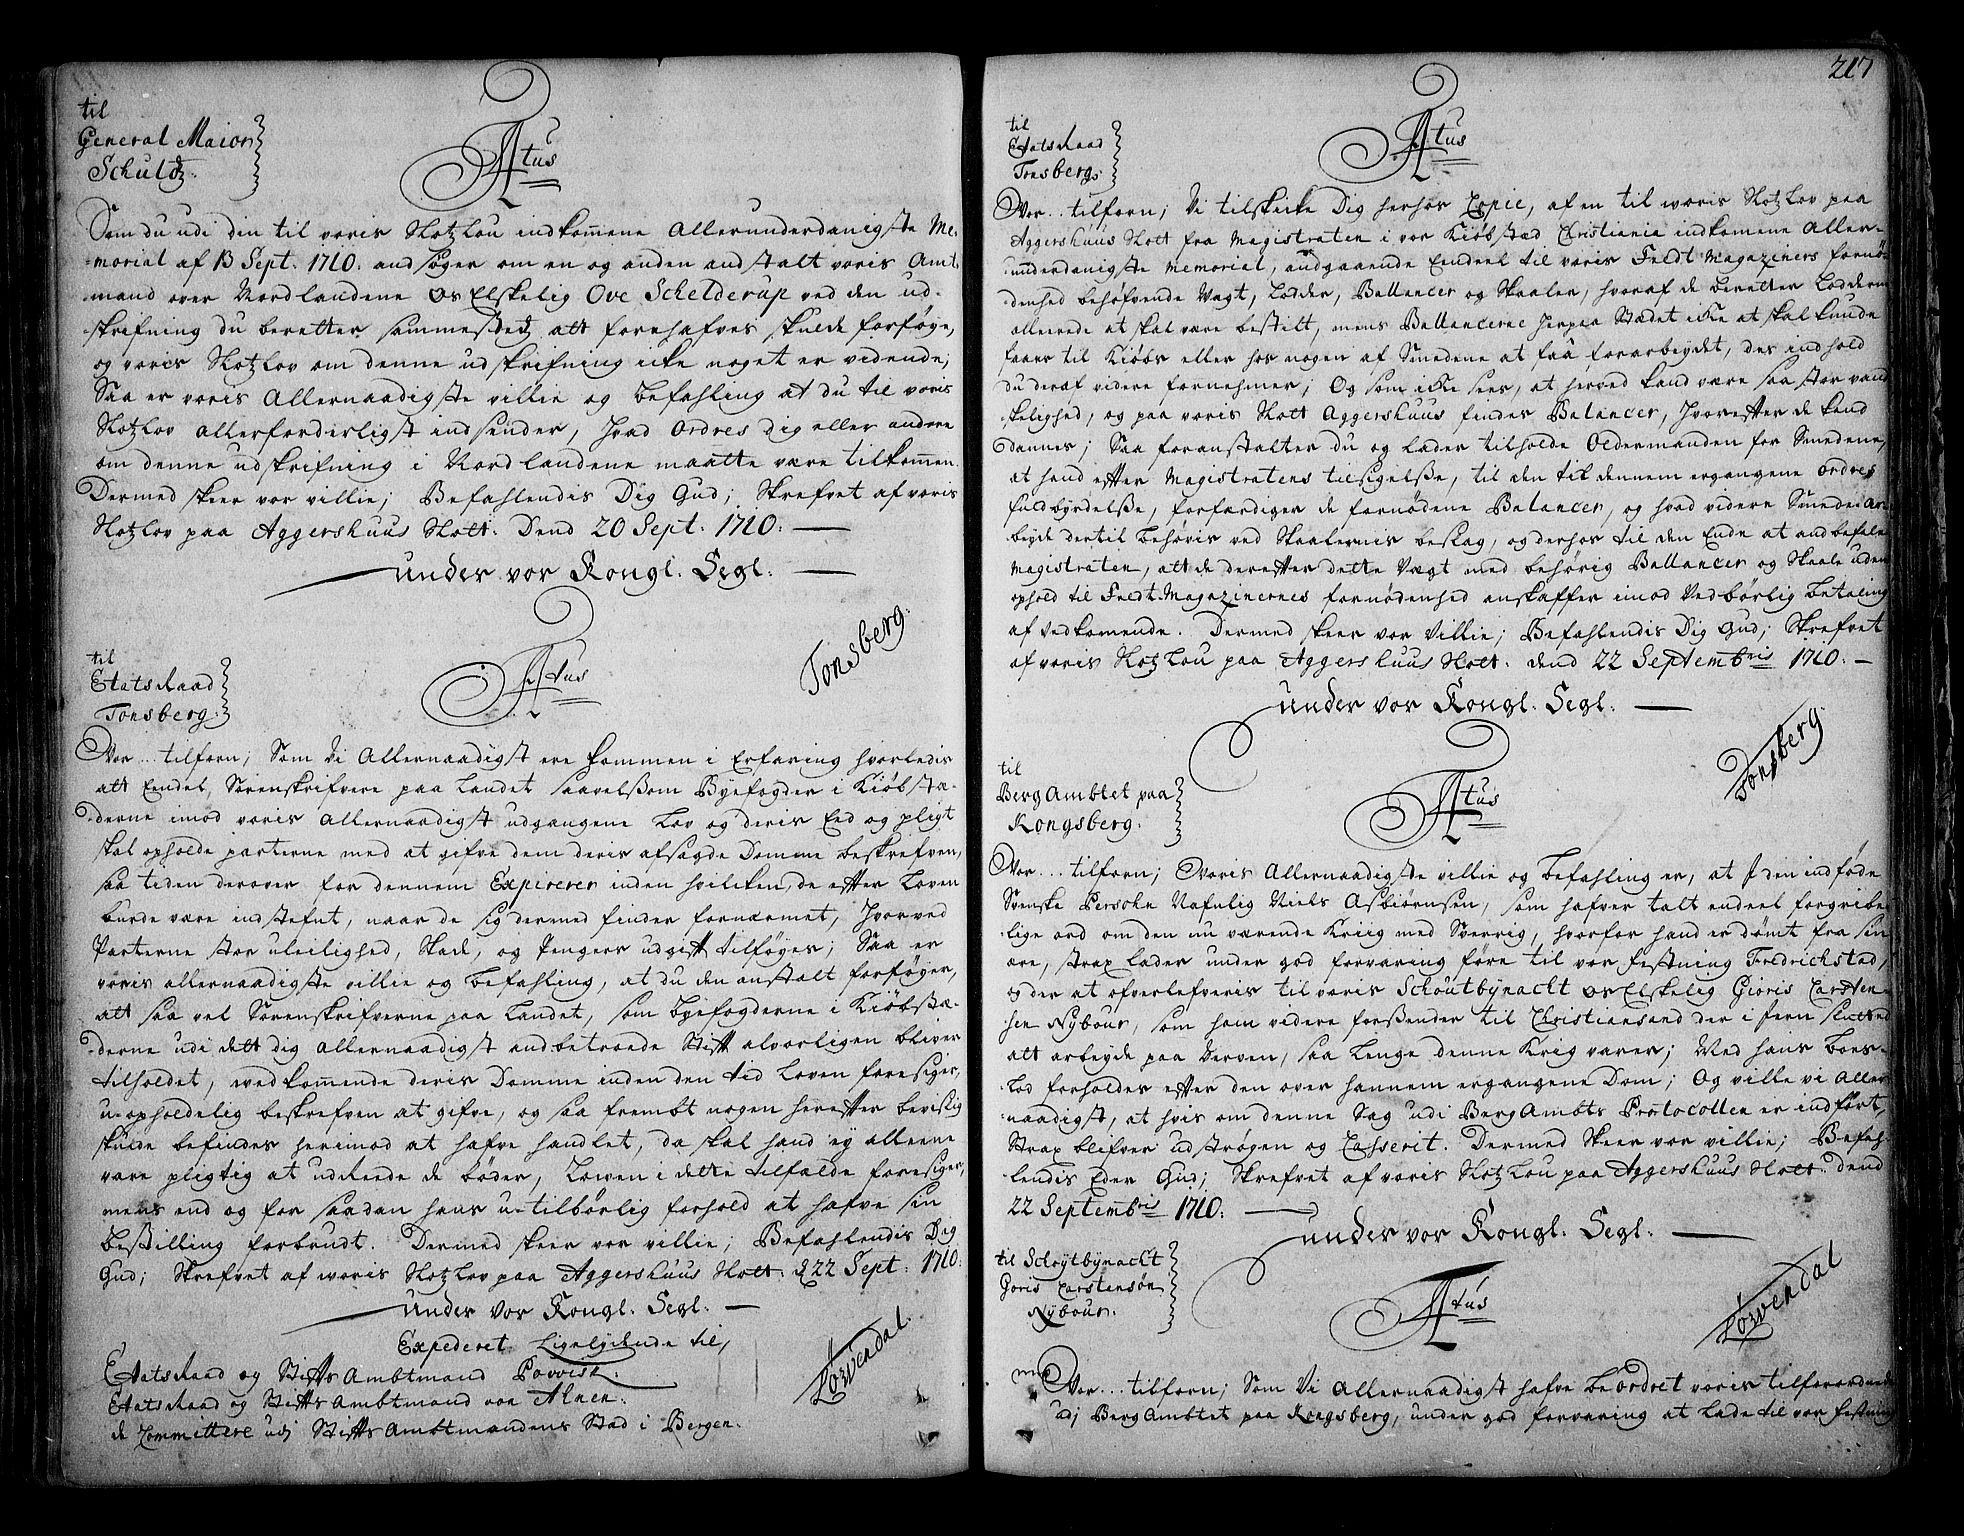 til
General Maior
Schultz.
Atus
Som du udi din til voris Slotzlou indkomene Allerunderdanigste Me-
morial af 13 Sept. 1710. andsøger om en og anden andstalt voris Amt
mand over Nordlandene Os Elskelig Ove Schelderup ved den ud-
skrifning du beretter sammestedz att forehafves skulde forføge,
og voris Slotzlov om denne udskrifning icke noget er vidende;
Saa er voris Allernaadigste villie og befahling at du til voris
Slotzlov allerforderligst indsender, hvad Ordres dig eller andere
om denne udskrifning i Nordlandene maatte være tilkommen.
Dermed skeer vor villie; Befahlendis Dig Gud; Skrefvet af voris
Slotzlov paa Aggershuus Slott. Dend 20 Sept. 1710.
under vor Kongl. Segl.
Tonsberg.
til
Etatsraad
Tonsberg.
Atus
Vor... tilforn; Som Vi Allernaadigst ere kommen i Erfaring hvorledis
att Eendel Sorenskrifvere paa Landet saavelssom Byefogder i Kiøbstæ-
derne imod voris Allernaadigst udgangene Lov og deris Eed og pligt
skal opholde parterne med at gifve dem deris afsagde Domme beskrefven,
saa tiden derover for dennem Expirerer inden hvilcken de efter Loven
burde være indstefnt, naar de sig dermed finder fornærmet, hvorved
Parterne stor uleilighed, Skade, og Penges udgift tilføges; Saa er
voris allernaadigste villie og befahling, at du den anstalt forføger,
att saa vel Sorenskrifverne paa Landet, som byefogderne i Kiøbstæ-
derne udi dett dig Allernaadigst andbetroede Stift alvorligen blever
tilholdet, vedkomende deris Domme inden den tid Loven foresiger,
u-opholdelig beskrefven at gifve, og saa frembt nogen herefter bevislig
skulde befindes herimod at hafve handlet, da skal hand ey alleene
være pligtig at udreede de bøder, Lowen i dette tilfalde foresiger,
mens end og for saadan hans u-tilbørlig forhold at hafve sin
bestilling forbrudt. Dermed skeer vor villie; Befahlendis Dig
Gud; Skrefvet af woris Slotzlov paa Aggershuus Slott. d 22 Sept. 1710.
under vor Kongl. Segl.
Expederet Ligelydende til,
Etatsraad og Stifts Ambtmand Povvisk.
Etatsraad og Stifts Ambtmand von Ahnen.
de Committere udj Stifts Ambtmandens Stad i Bergen.
Løwendal.
217
til
Etatsraad
Tonsberg.
Atus
Vor... tilforn; Vi tilskicke Dig herhos Copie, af en til woris Slotzlov paa
Aggershuus Slott fra Magistraten i vor Kiøbstæd Christiania indkomene Aller-
underdanigste Memorial, andgaaende Eendeel til voris Feldt Magaziners fornø-
denhed behøfvende Vagt, Lodder, Ballancer og Skaaler, hvoraf de beretter Lodderne
allerede at skal være bestilt, mens Ballancerne herpaa Stædet icke at skal kunde
faaes til Kiøbs eller hos nogen af Smedene at faa forarbeydet, des indhold
du deraf videre fornehmer; Og som icke sees, at herved kand være saa stor vand-
skelighed, og paa voris Slott Aggershuus findes Balancer, hvorefter de kand
dannes; Saa foranstalter du og lader tilholde Oldermanden for Smedene,
at hand efter Magistratens tilsigelsse, til den til dennem ergangene ordres
fuldbyrdelsse, forfærdiger de fornødene Balancer, og hvad videre Smede ar-
beyde dertil behøvis ved Skaalernis beslag, og derhos til den Ende at andbefale
Magistraten, att de derefter dette Vægt med behørig Ballancer og Skaale uden
ophold til Feldt-Magazinernes fornødenhed anskaffer imod Vedbørlig betaling
af vedkomende. Dermed skeer vor Villie; Befahlendis Dig Gud; Skrefvet
af voris Slotzlou paa Aggershuus Slott. dend 22 Septembris 1710.
under vor Kongl. Segl.
Tonsberg.
til
BergAmbtet paa
Kongsberg.
Atus
Vor... tilforn; Voris Allernaadigste villie og befahling er, at I den indføde
Svenske Persohn Nafnlig Niels Asbiørnsen, som hafver talt endeel forgribe-
lige ord om den nu værende Kriig med Sverrig, hvorfor hand er dømt fra sin
ære, strax lader under god forvaring føre til vor festning Fredrichstad,
og der at ofverlefveris til voris Schoutbynacht os Elskelig Gioris Carsten-
sen Nybour, som ham videre forssender til Christiansand der i fern sluttet
att arbeyde paa Verven, saa lenge denne Krig varer; Med hans boes-
lod forholdes efter den over hannem ergangene Dom; Og ville vi Aller-
naadigst, at hvis om denne Sag udi BergAmbts Protocollen er indført,
strax blifver udstrøgen og Casserit. Dermed Skeer vor villie; Befah-
lendis Eder Gud; Skrefvet af voris Slotzlou paa Aggershuus Slott. dend
22 Septembris 1710.
under vor Kongl. Segl.
Løwendal
til Schoytbynacht
Goris Carstensøn
Nybour.
Atus
Vor... tilforn; Som Vi Allernaadigst hafve beordret voris tilforordnede
udj BergAmbtet paa Kongsberg, under god forvaring at lade til vor festning